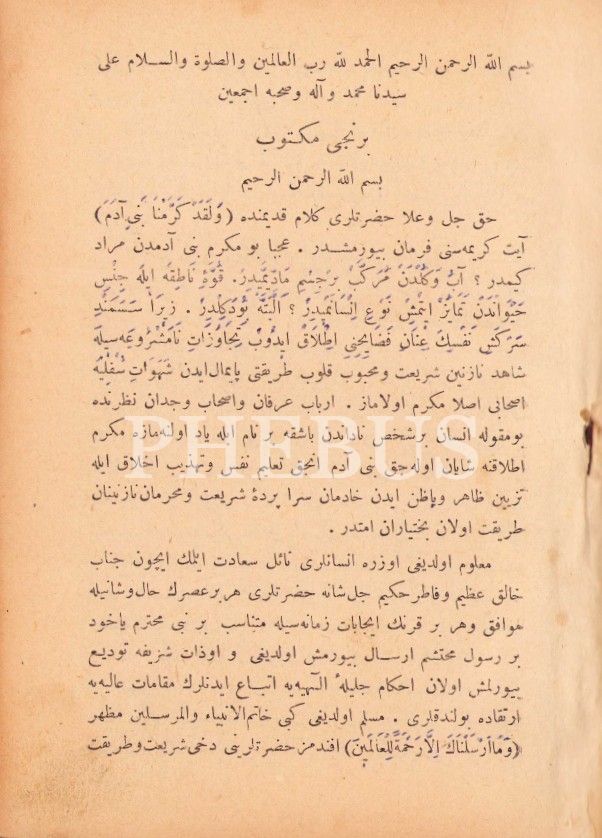 بسم الله الرحمن الرحيم الحمد لله رب العالمين والصلوة والسلام على
سيدنا محمد وآله وصحبه اجمعين
برنجى مكتوب
بسم الله الرحمن الرحيم
حق جل وعلا حضرتلرى كلام قديمنده (وَلَقَدْ كَرَّمْنَا بَنِى آدَمَ)
آيت كريمه‌سنى فرمان بيورمشدر . عجبا بو مكرم بنى آدمدن مراد
كيمدر ؟ آب وكلدن مركب برجسم مادميدر. قوۀ ناطقه ايله جنس
حيواندن تمايز ايتمش نوع انسانميدر ؟ البته بودكلدر . زيرا سمند
سركش نفسك عنان فضايحنى اطلاق ايدوب تجاوزات نامشروعه‌سيله
شاهد نازنين شريعت ومحبوب قلوب طريقتى پايمال ايدن شهوات سفليه
اصحابى اصلا مكرم اولاماز . ارباب عرفان واصحاب وجدان نظرنده
بومقوله انسان برشخص ناداندن باشقه بر نام ايله ياد اولنه‌مازه مكرم
اطلاقنه شايان اوله‌جق بنى آدم انجق تعليم نفس وتهذيب اخلاق ايله
تزيين ظاهر وباطن ايدن خادمان سرا پردۀ شريعت ومحرمان نازنينان
طريقت اولان بختياران امتدر .
معلوم اولديغى اوزره انسانلرى نائل سعادت ايتمك ايچون جناب
خالق عظيم وفاطر حكيم جل شانه حضرتلرى هر بر عصرك حال وشانيله
موافق وهر بر قرنك ايجابات زمانه‌سيله متناسب بر نبى محترم ياخود
بر رسول محتشم ارسال بيورمش اولديغى و اوذات شريفه توديع
بيورلمش اولان احكام جليلۀ آلهيه‌يه اتباع ايدنلرك مقامات عاليه‌يه
ارتقاده بولندقلرى . مسلم اولديغى كبى خاتم الانبياء والمرسلين مظهر
(وَمَا اَرْسَلْنَاكَ اِلَّا رَحْمَةً لِلْعَالَمِينَ) افندمز حضرتلرينى دخى شريعت وطريقت
PHEBUS